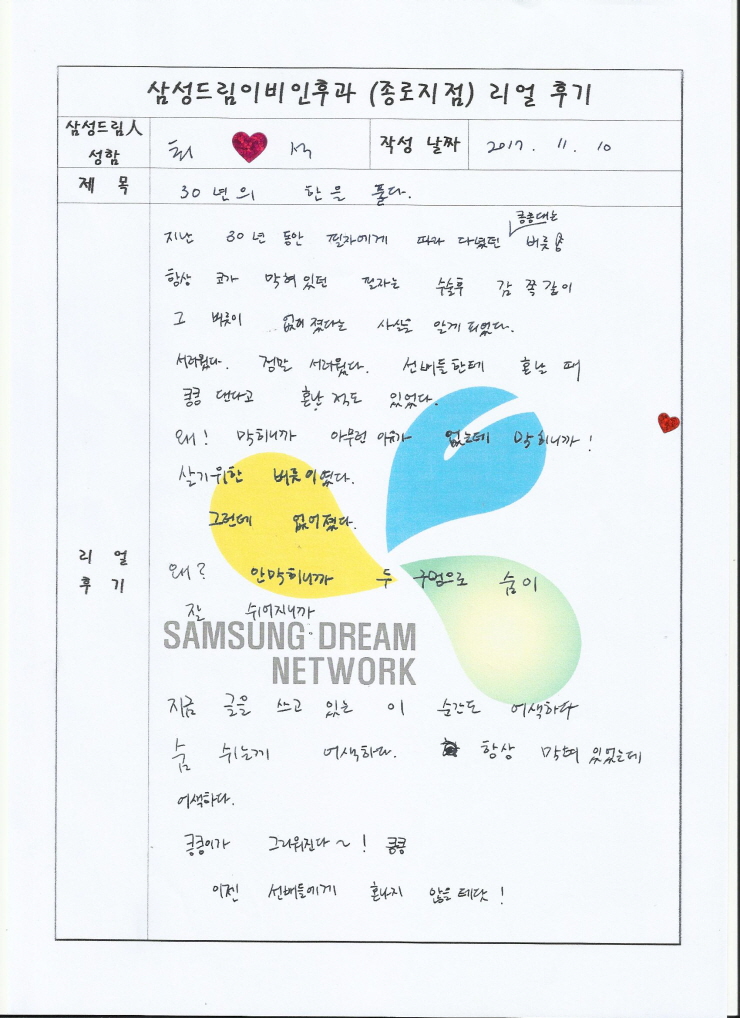 삼성드림이비인후과 (종로지점) 리얼 후기
삼성드림人
성함
최 석
작성 날짜
2017. 11. 10
제 목
30년의 한을 풀다.
킁킁대는
지난 30년 동안 필자에게 따라 다녔던 버릇
항상 코가 막혀 있던 필자는 수술후 감쪽같이
그 버릇이 없어 졌다는 사실을 알게 되었다.
서러웠다. 정말 서러웠다. 선배들한테 혼날 때
킁킁 댄다고 혼난 적도 있었다.
왜! 막히니까 아무런 이유가 없는데 막히니까!
살기위한 버릇이였다.
그런데 없어졌다.
리 얼
후 기
왜? 안막히니까 두 구멍으로 숨이
잘 쉬어지니까
SAMSUNG DREAM
NETWORK
지금 글을 쓰고 있는 이 순간도 어색하다
숨 쉬는게 어색하다. 항상 막혀 있었는데
어색하다.
킁킁이가 그리워진다~! 킁킁
이젠 선배들에게 혼나지 않을 테닷!